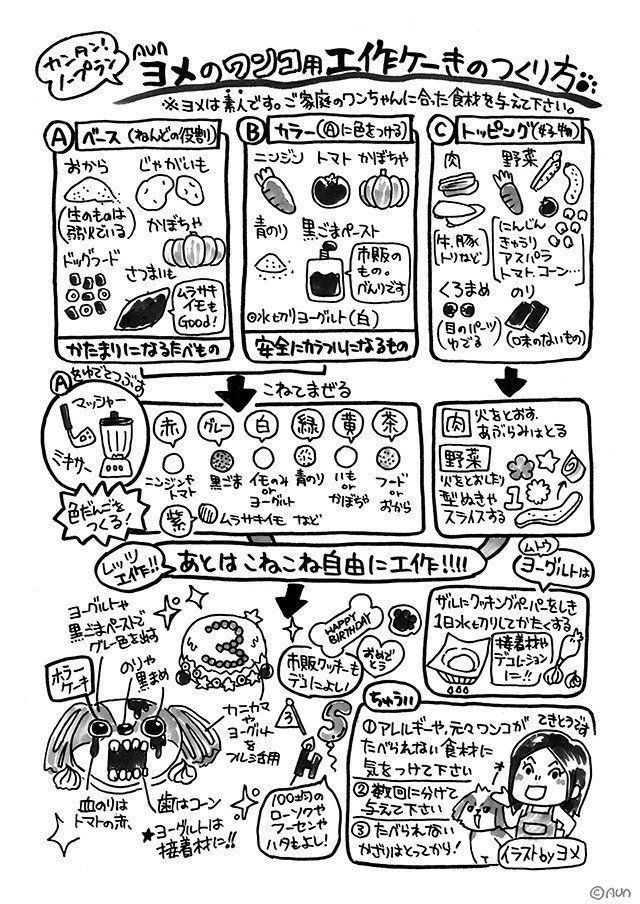 カンタン!
ノープラン
AUN
ヨメのワンコ用工作ケーキのつくり方
※ヨメは素人です。ご家庭のワンちゃんに合った食材を与えて下さい。
A ベース(ねんどの役割)
おから じゃがいも
(生のものは
弱火でいる)
かぼちゃ
ドッグフード
さつまいも
ムラサキ
イモも
Good!
かたまりになるたべもの
B カラー(Aに色をつける)
ニンジン トマト かぼちゃ
青のり 黒ごまペースト
市販の
もの。
べんりです
◎水切りヨーグルト(白)
安全にカラフルになるもの
C トッピング(好物)
肉 野菜
(牛、豚
トリなど)
(にんじん
きゅうり
アスパラ
トマト、コーン…)
くろまめ のり
(目のパーツ
ゆでる)
(味のないもの)
Aをゆでてつぶす
マッシャー
ミキサー
こねてまぜる
赤 グレー 白 緑 黄 茶
ニンジンや
トマト
黒ごま
イモのみ
or
ヨーグルト
青のり
いも
or
かぼちゃ
フード
or
おから
紫 ムラサキイモ など
色だんごを
つくる!
肉 火をとおす。
あぶらみはとる
野菜
火をとおしたり
型ぬきや
スライスする
1
レッツ
工作!!
あとはこねこね自由に工作!!!!
ムトウ
ヨーグルトは
ザルにクッキングペーパーをしき
1日水切りしてかたくする
接着材や
デコレーション
に!!
ヨーグルトや
黒ごまペーストで
グレー色を出す
3
HAPPY
BIRTHDAY
おめで
とう
市販クッキーも
デコによし!
ホラー
ケーキ
のりや
黒まめ
カニカマ
や
ヨーグルト
をフル活用
3
S
H
血のりは
トマトの赤、
歯はコーン
★ヨーグルトは
接着材に!!
100均の
ローソクや
フーセンや
ハタもよし!
ちゅうい
①アレルギーや、元々ワンコが
たべられない食材に
気をつけて下さい
②数回に分けて
与えて下さい
③たべられない
かざりはとってから!
てきとうです
イラスト by ヨメ
©AUN